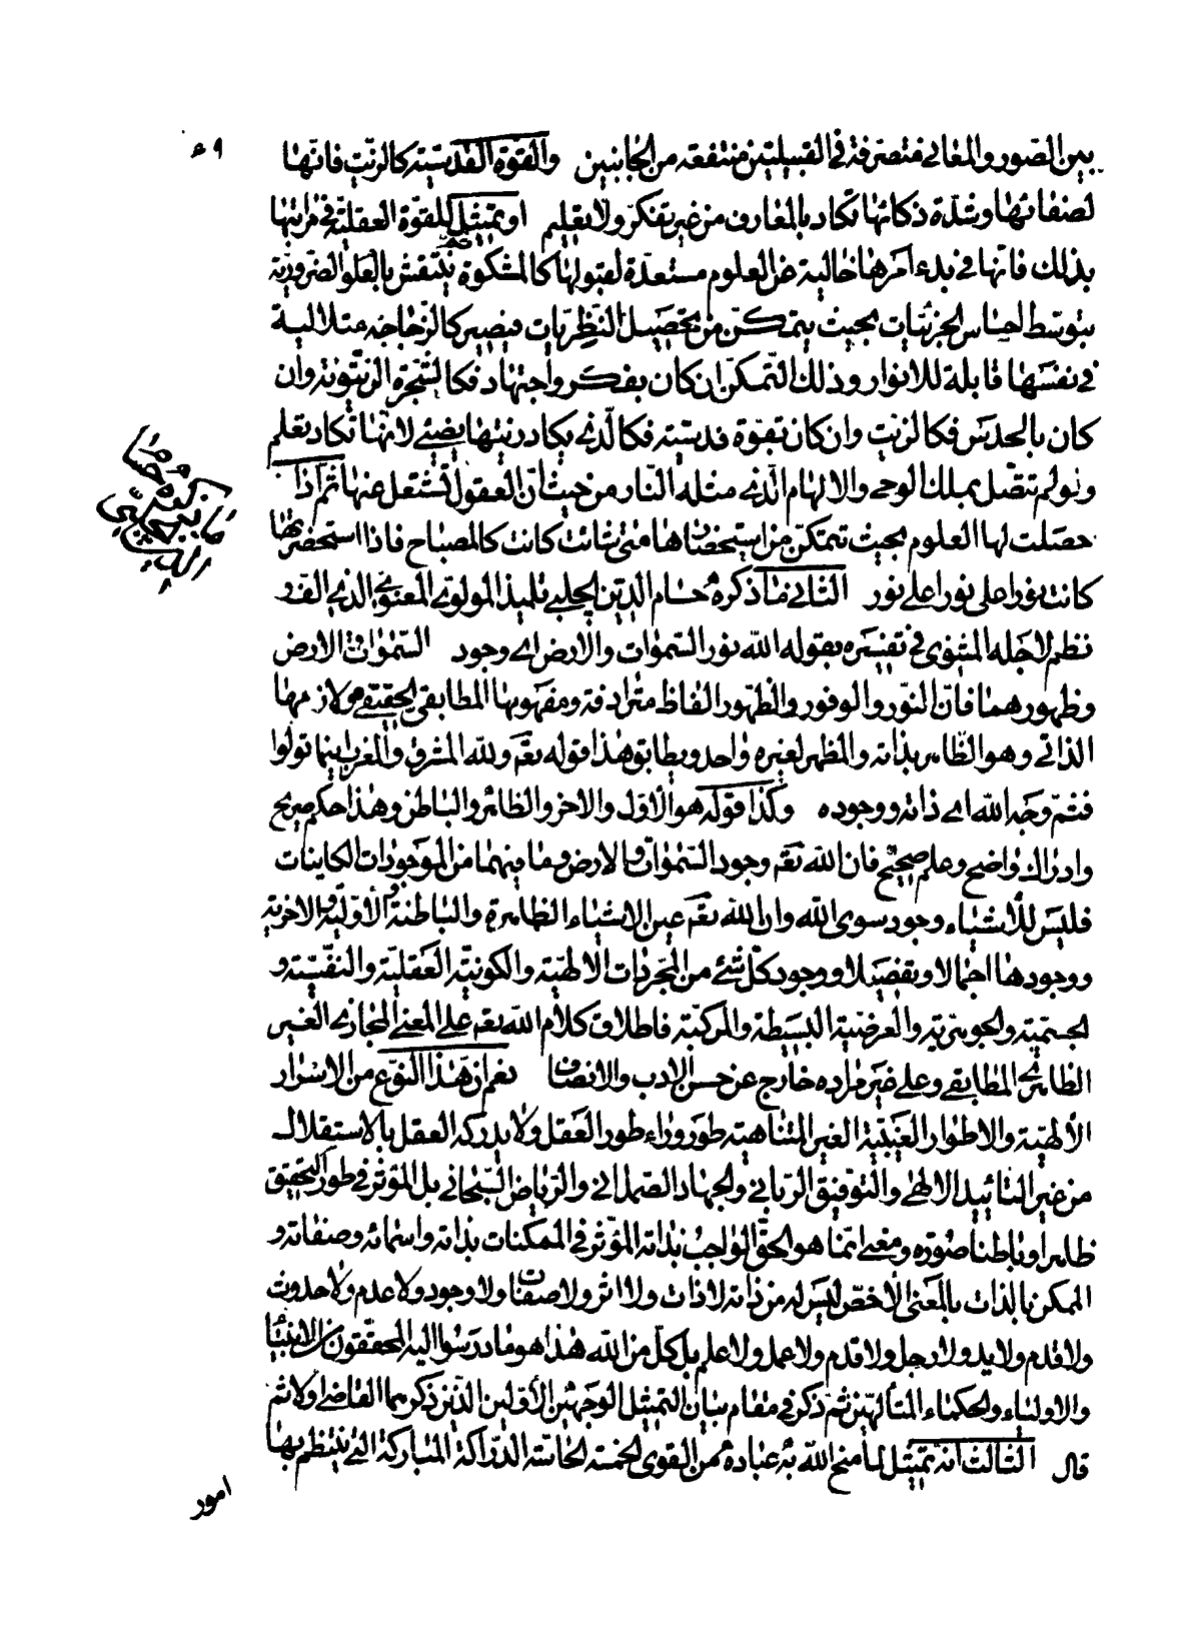 ٩ء
بين الصور والمعاني متصرفة في القبيلتين منتفعه من الجانبين والقوة القدسيته كالزيت فانها
لصفائها وشدة ذكائها تكاد بالمعارف من غير تفكر ولا تعليم او تمثيل للقوة العقلية في مراتبها
بذلك فانها في بدء امرها خالية عن العلوم مستعدة لقبولها كالمشكوة ثم تنتقش بالعلو الضرورية
بتوسط احساس الجزئيات بحيث يتمكن من تحصيل النظريات فيصير كالزجاجه متلالية
في نفسها قابلة للانوار وذلك التمكن ان كان بفكر واجتهاد فكالشجرة الزيتونة وان
كان بالحدس فكالزيت وان كان بقوة قدسيته فكالذي يكاد زيتها يضئ لانها تكاد تعلم
ولو لم تتصل بملك الوحي والالهام الذي مثله النار من حيث ان العقول تشتعل عنها ثم اذا
حصلت لها العلوم بحيث تتمكن من استحضارها متى شائت كانت كالمصباح فاذا استحضرتها
كانت نورا على نورا على نور الثاني ما ذكره حسام الدين الجلبي تلميذ المولوي المعنوي الذي الف و
نظم لاجله المثنوي في تفسيره بقوله الله نور السموات والارض اي وجود السموات والارض
وظهورهما فان النور والوفور والظهور الفاظ مترادفة ومفهومها المطابقي الحقيقي ولازمها
الذاتي وهو الظاهر بذاته والمظهر لغيره واحد ويطابق هذا قوله تعم ولله المشرق والمغرب اينما تولوا
فثم وجه الله اي ذاته ووجوده وكذا قوله هو الاول والاخر والظاهر والباطن وهذا حكم صريح
وادراك واضح وعلم صحيح فان الله تعم وجود السموات والارض وما بينهما من الموجودات الكاينات
فليس للأشياء وجود سوى الله وان الله تعم عين الاشياء الظاهرة والباطنة والأولية والاخرية
ووجودها اجمالا وتفصيلا ووجود كل شئ من المجردات الالهية والكونية العقلية والنفسية و
الجسمية والجوهرية والعرضية البسيطة والمركبة فاطلاق كلام الله تعم على المعنى المجازي الغير
الظاهري المطابقي وعلى غير مراده خارج عن حسن الادب والانصاف نعم ان هذا النوع من الاسرار
الألهية والاطوار الغيبية الغير المتناهية طور وراء طور العقل ولا يدركه العقل بالاستقلال
من غير التائيد الالهى والتوفيق الرباني والجهاد الصمداني والرياض السبحاني بل المؤثر في طور التحقيق
ظاهرا وباطنا صورة ومعنى انما هو الحق الواجب بذاته المؤثر في الممكنات بذاته واسمائه وصفاته و
الممكن بالذات بالمعنى الاخص ليس له من ذاته لا ذات ولا اثر ولا صفات ولا وجود ولا عدم ولا حدوث
ولا قدم ولا يد ولا رجل ولا قدم ولا عمل ولا علم بل كل من الله هذا هو ما درسوا اليه المحققون من الانبيا
والاولياء والحكماء المتألهين ثم ذكر في مقام بيان التمثيل الوجهين الأولين الذين ذكرهما القاضي اولا ثم
قال الثالث انه تمثيل لما منح الله به عباده من القوى الخمسة الحاسة الدراكة المباركة التي ينتظم بها
امور